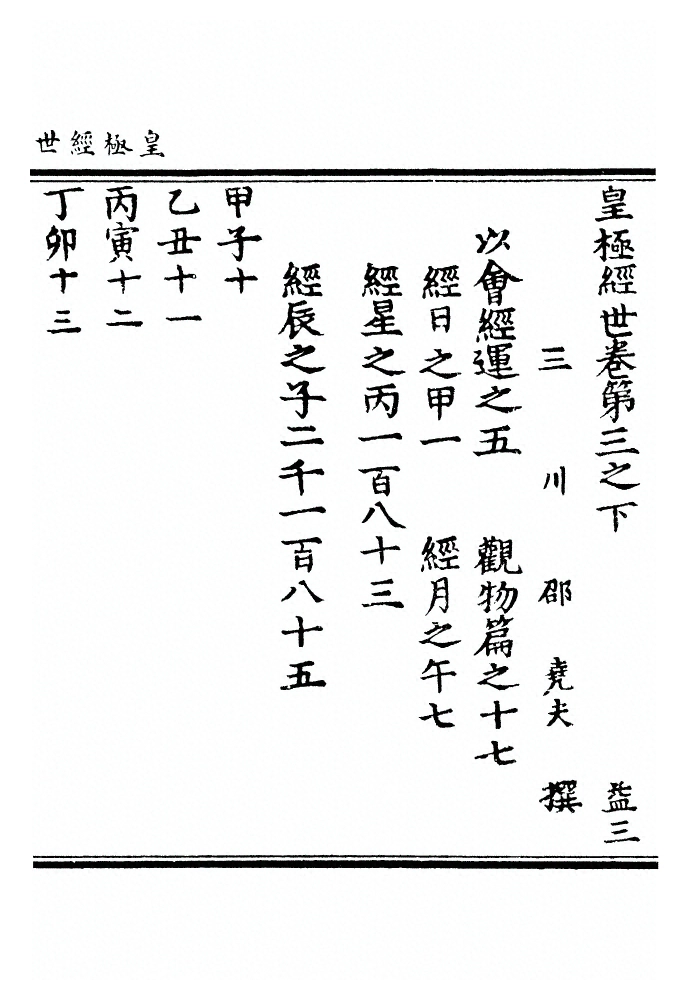 皇極經世
皇極經世卷第三之下 益三
三川邵堯夫撰
以會經運之五 觀物篇之十七
經日之甲一 經月之午七
經星之丙一百八十三
經辰之子二千一百八十五
甲子十
乙丑十一
丙寅十二
丁卯十三